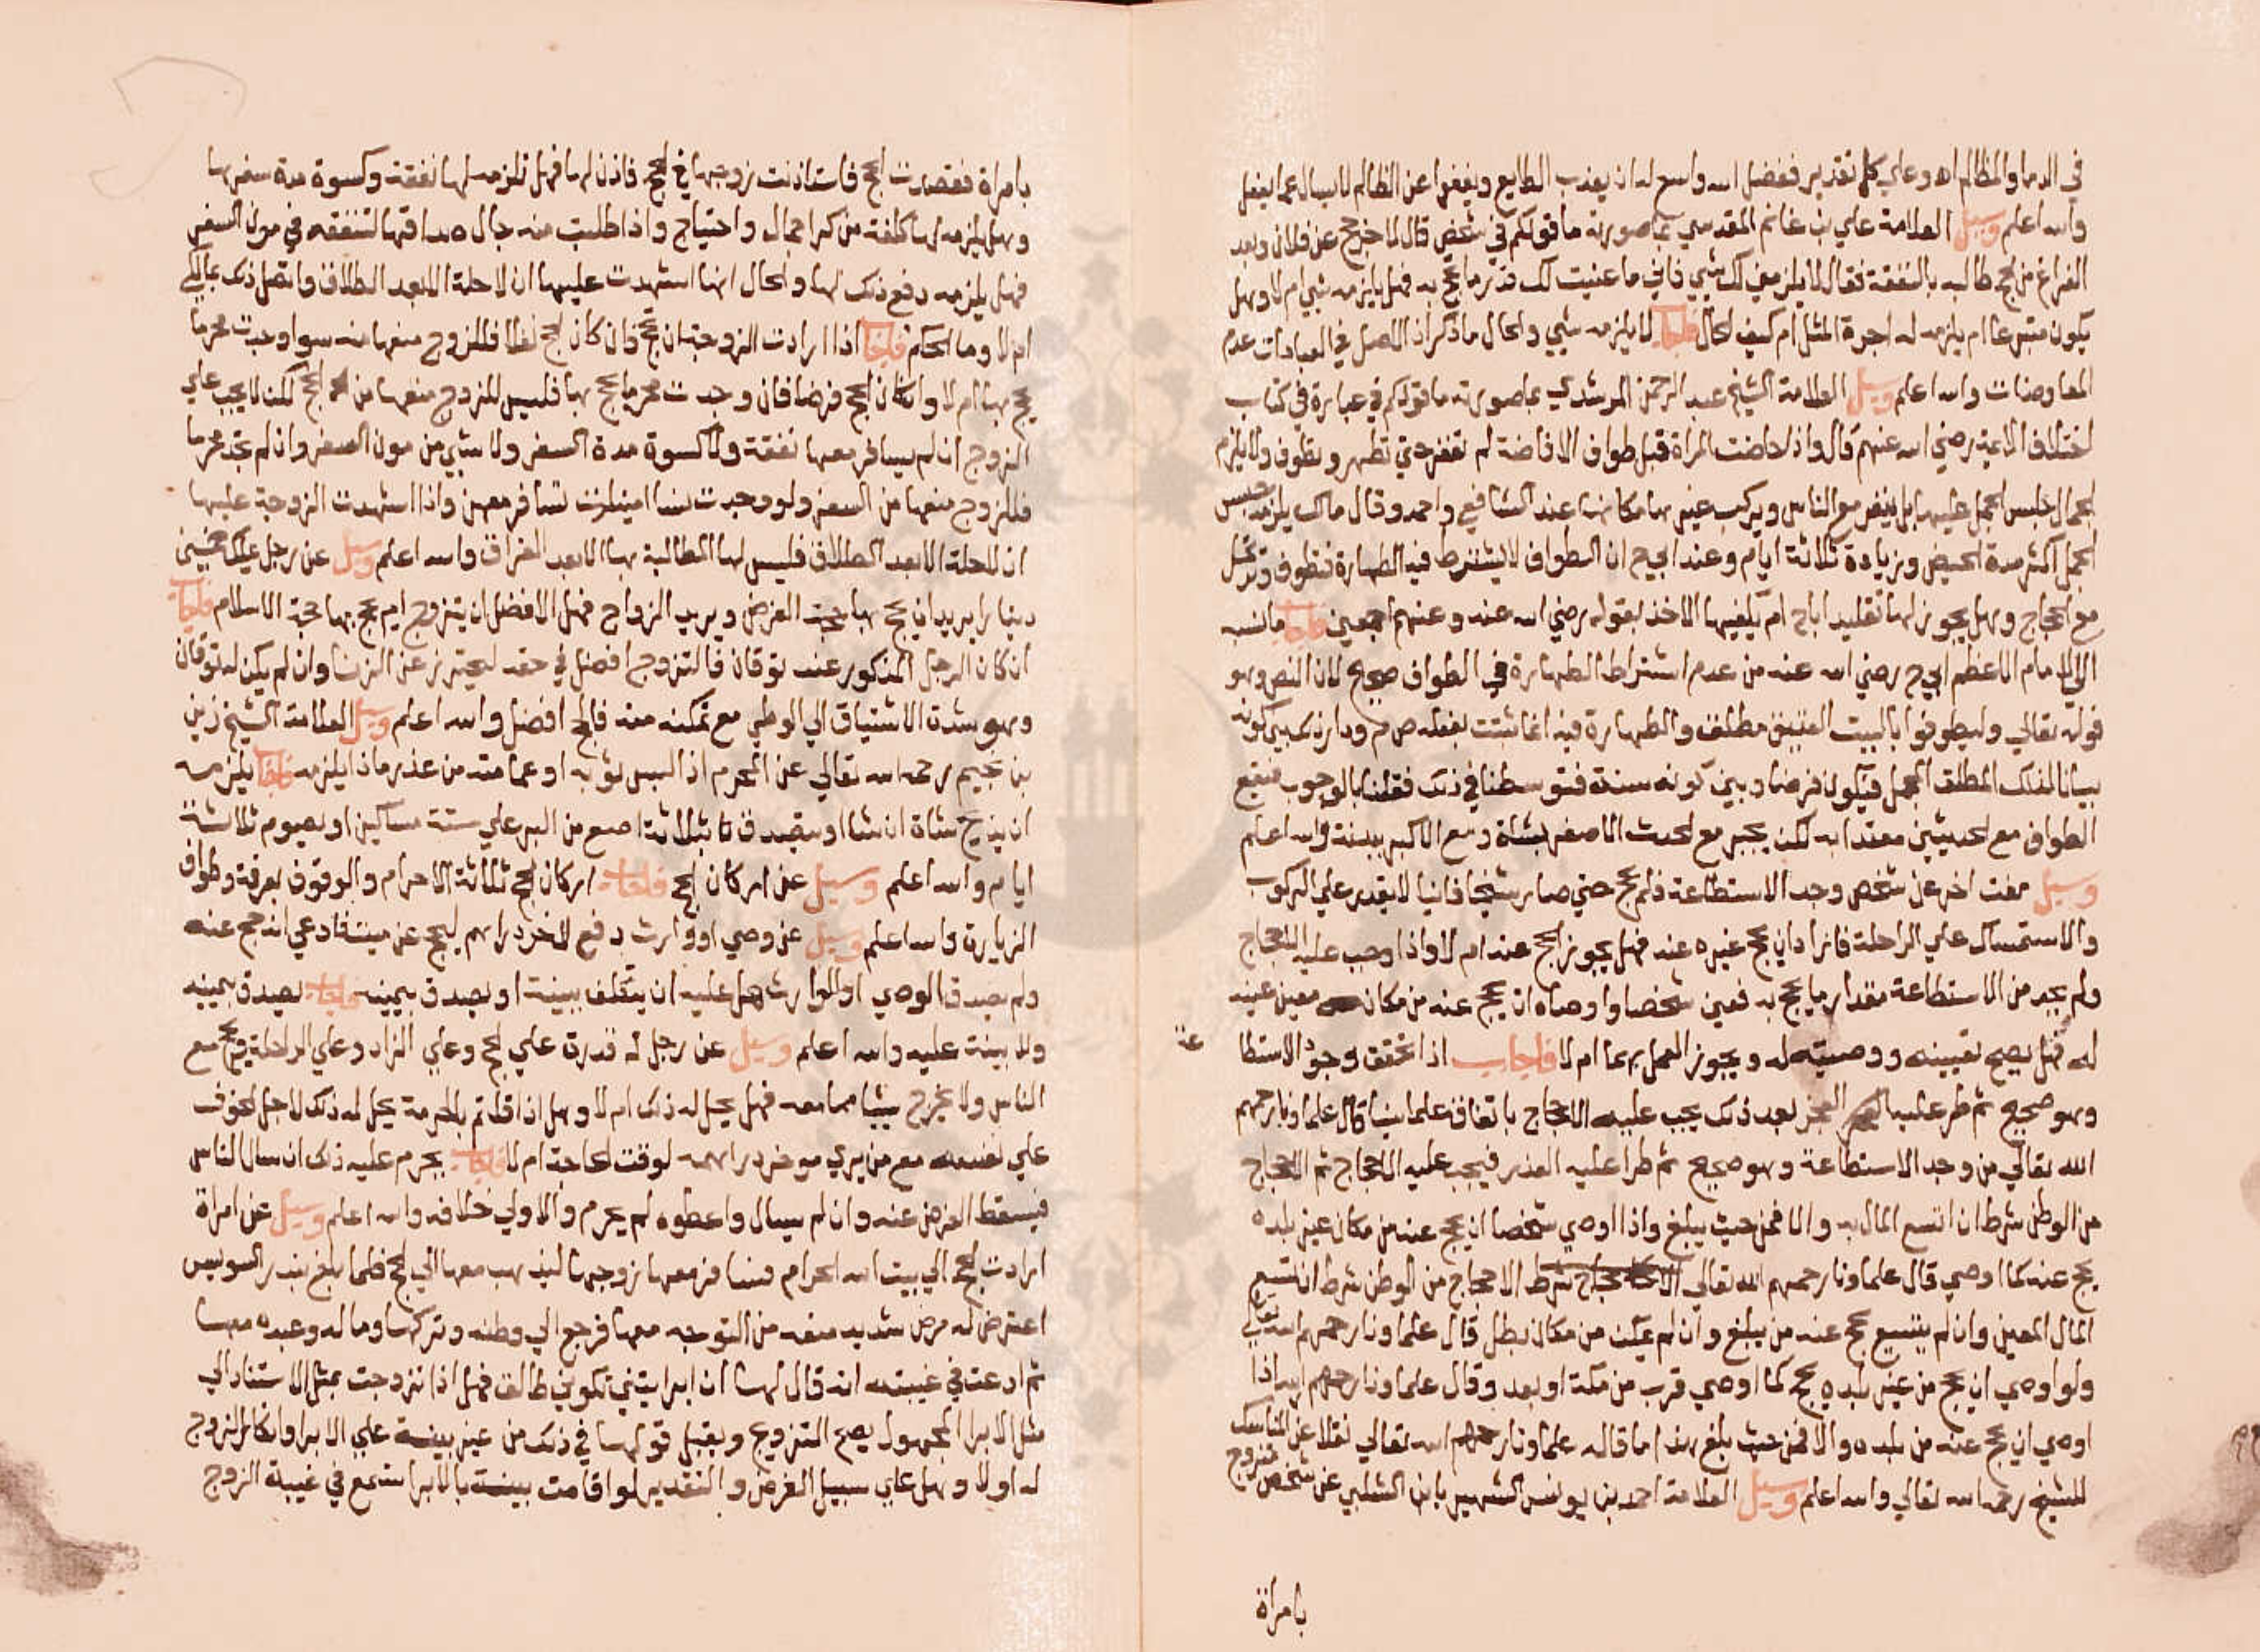 في الدما والمظالم اه وعلي كل تقدير ففضل الله واسع له ان يعذب الطايع ويعفوا عن الظالم لا يسال عما يفعل
والله اعلم وسيل العلامة علي بن غانم المقدسي بما صورته ما قولكم في شخص قال لاخر حج عن فلان وبعد
الفراغ من الحج طالبه بالنفقة فقال لا يلزمني لك شي فاني ما عنيت لك قدر ما تحج به فهل يلزمه شي ام لا وهل
يكون متبرعا ام يلزمه له اجرة المثل ام كيف الحال فاجاب لا يلزمه شي والحال ما ذكر اذ الاصل في العبادات عدم
المعاوضات والله اعلم وسيل العلامة الشيخ عبد الرحمن المرشدي بما صورته ما قولكم في عبارة في كتاب
اختلاف الايمة رضي الله عنهم قال واذا حاضت المراة قبل طواف الافاضة لم تنفر حتي تطهر وتطوف ولا يلزم
الجمال حبس الجمل عليها بل ينفر مع الناس ويركب غيرها مكانها عند الشافعي واحمد وقال مالك يلزمه حبس
الجمل اكثر مدة الحيض وزيادة ثلاثة ايام وعند ابي ح ان الطواف لا يشترط فيه الطهارة فتطوف وترحل
مع الحجاج وهل يجوز لها تقليد ابا ح ام يكفيها الاخذ بقوله رضي الله عنه وعنهم اجمعين فاجاب ما نسب
الي الامام الاعظم ابي ح رضي الله عنه من عدم اشتراط الطهارة في الطواف صحيح لان النص وهو
قوله تعالي وليطوفوا بالبيت العتيق مطلق والطهارة فيه انما ثبتت بفعله ص م ودار ذلك بين كونه
بيانا لذلك المطلق المجمل فيكون فرضا وبين كونه سنة فتوسطنا في ذلك فقلنا بالوجوب فيقع
الطواف مع الحدثين معتدا به لكن يجبر مع الحدث الاصغر بشاة ومع الاكبر ببدنة والله اعلم
وسيل مفت اخر عن شخص وجد الاستطاعة فلم يحج حتي صار شيخا فانيا لا يقدر علي الركوب
والاستمساك علي الراحلة فاراد ان يحج غيره عنه فهل يجوز الحج عنه ام لا واذا وجب عليه الاحجاج
ولم يجد من الاستطاعة مقدار ما يحج به فعين شخصا واوصاه ان يحج عنه من مكان معين عينه
له فهل يصح تعيينه ووصيته له ويجوز العمل بهما ام لا فاجاب اذا تحقق وجود الاستطا
عة
وهو صحيح ثم طر عليه العجز بعد ذلك يجب عليه الاحجاج باتفاق علماينا قال علماونا رحمهم
الله تعالي من وجد الاستطاعة وهو صحيح ثم طرا عليه العذر فيجب عليه الاحجاج ثم الاحجاج
من الوطن شرط ان اتسع المال به والا فمن حيث يبلغ واذا اوصي شخصا ان يحج عنه من مكان غير بلده
يحج عنه كما اوصي قال علماونا رحمهم الله تعالي شرط الاحجاج من الوطن شرط ان اتسع
المال المعين وان لم يتسع يحج عنه من يبلغ وان لم يمكن من مكان بطل قال علماونا رحمهم الله تعالي
ولو اوصي ان يحج من غير بلده يحج كما اوصي قرب من مكة او بعد وقال علماونا رحمهم الله اذا
اوصي ان يحج عنه من بلده والا فمن حيث بلغ هذا ما قاله علماونا رحمهم الله تعالي نقلا عن المناسك
للشيخ رحمه الله تعالي والله اعلم وسيل العلامة احمد بن يونس الشهير بابن الشلبي عن شخص متزوج
بامراة
بامراة فقصدت الحج فاستاذنت زوجها في الحج فاذن لها فهل تلزمه لها نفقة وكسوة مدة سفرها
وهل يلزمه لها كلفة من كرا جمال واحتياج واذا طلبت منه حال صداقها لتنفقه في مون السفر
فهل يلزمه دفع ذلك لها والحال انها استهدت عليها ان لا حلة الا بعد الطلاق واتصل ذلك بمالكي
ام لا وما الحكم فاجاب اذا ارادت الزوجة ان تحج فان كان الحج نفلا فللزوج منعها منه سوا وجدت محرما
يحج بها ام لا وان كان الحج فرضا فان وجدت محرما يحج بها فليس للزوج منعها من الحج لكن لا يجب علي
الزوج ان لم يسافر معها نفقة ولا كسوة مدة السفر ولا شي من مون السفر وان لم تجد محرما
فللزوج منعها من السفر ولو وجدت نسا امينات تسافر معهن واذا استهدت الزوجة عليها
ان لا حلة الا بعد الطلاق فليس لها المطالبة بها الا بعد الفراق والله اعلم وسيل عن رجل يملك خمسين
دينارا يريد ان يحج بها حجة الفرض ويريد الزواج فهل الافضل ان يتزوج ام يحج بها حجة الاسلام فاجاب
ان كان الرجل المذكور عنده توقان فالتزوج افضل في حقه ليحترز عن الزنا وان لم يكن له توقان
وهو شدة الاشتياق الي الوطي مع تمكنه منه فالحج افضل والله اعلم وسيل العلامة الشيخ زين
بن نجيم رحمه الله تعالي عن المحرم اذا لبس ثوبه او عمامته من عذر ماذا يلزمه فاجاب يلزمه
ان يذبح شاة ان شا او يتصدق بثلاثة اصع من البر علي ستة مساكين او يصوم ثلاثة
ايام والله اعلم وسيل عن اركان الحج فاجاب اركان الحج ثلاثة الاحرام والوقوف بعرفة وطواف
الزيارة والله اعلم وسيل عن وصي او وارث دفع لاخر دراهم ليحج عن ميت فادعي انه حج عنه
ولم يصدق الوصي او الوارث هل عليه ان يتكلف ببينة او يصدق بيمينه فاجاب يصدق بيمينه
ولا بينة عليه والله اعلم وسيل عن رجل له قدرة علي الحج وعلي الزاد وعلي الراحلة فيحج مع
الناس ولا يخرج شيا مما معه فهل يحل له ذلك ام لا وهل اذا قلتم بالحرمة يحل له ذلك لاجل الخوف
علي نفسه مع من يري فيوخر دراهمه لوقت الحاجة ام لا فاجاب يحرم عليه ذلك ان سال الناس
فيسقط الفرض عنه وان لم يسال واعطوه لم يحرم والاولي خلافه والله اعلم وسيل عن امراة
ارادت الحج الي بيت الله الحرام فسافر معها زوجها ليذهب معها الي الحج فلما بلغ بندر السويس
اعترض له مرض شديد منعه من التوجه معها فرجع الي وطنه وتركها وماله وعبده معها
ثم ادعت في غيبته انه قال لها ان ابرايتني تكوني طالق فهل اذا تزوجت بمثل الاستناد الي
مثل الابرا المجهول يصح التزويج ويقبل قولها في ذلك من غير بينة علي الابرا وانكار الزوج
له اولا وهل علي سبيل الفرض والتقدير لو اقامت بينة بالابرا تسمع في غيبة الزوج